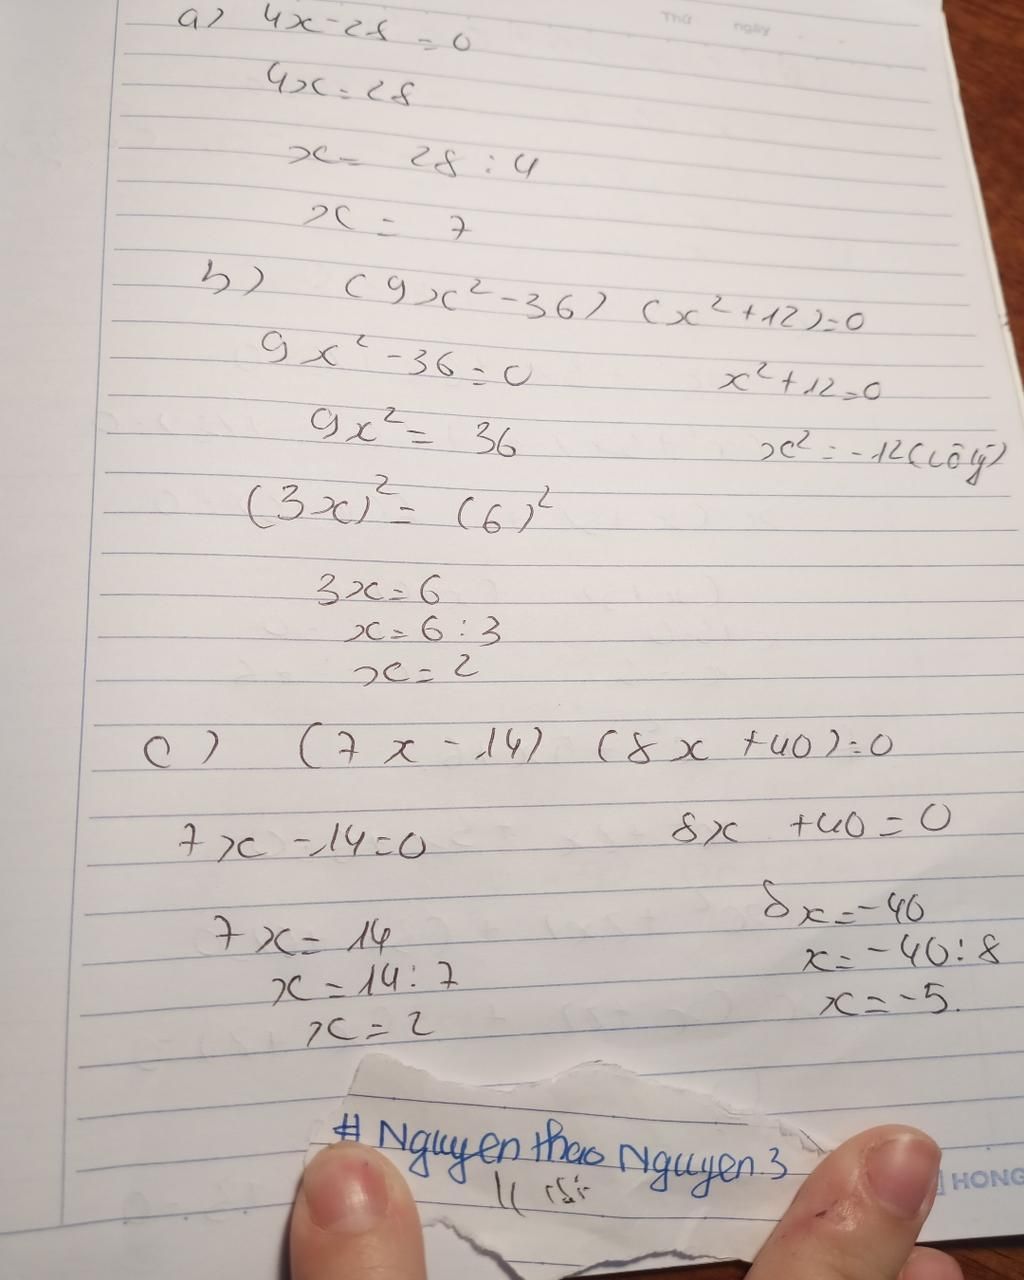 Thứ ngày
a) 4x-28 = 0
4x = 28
x = 28 : 4
x = 7
b) (9x²-36) (x²+12)=0
9x²-36=0 x²+12=0
9x² = 36 x² = -12 (
(3x)² = (6)²
3x=6
x=6:3
x=2
c) (7x-14) (8x+40)=0
7x-14=0 8x+40=0
7x=14 8x=-40
x=14:7 x=-40:8
x=2 x=-5.
# Nguyen thao Nguyen.3
HONG